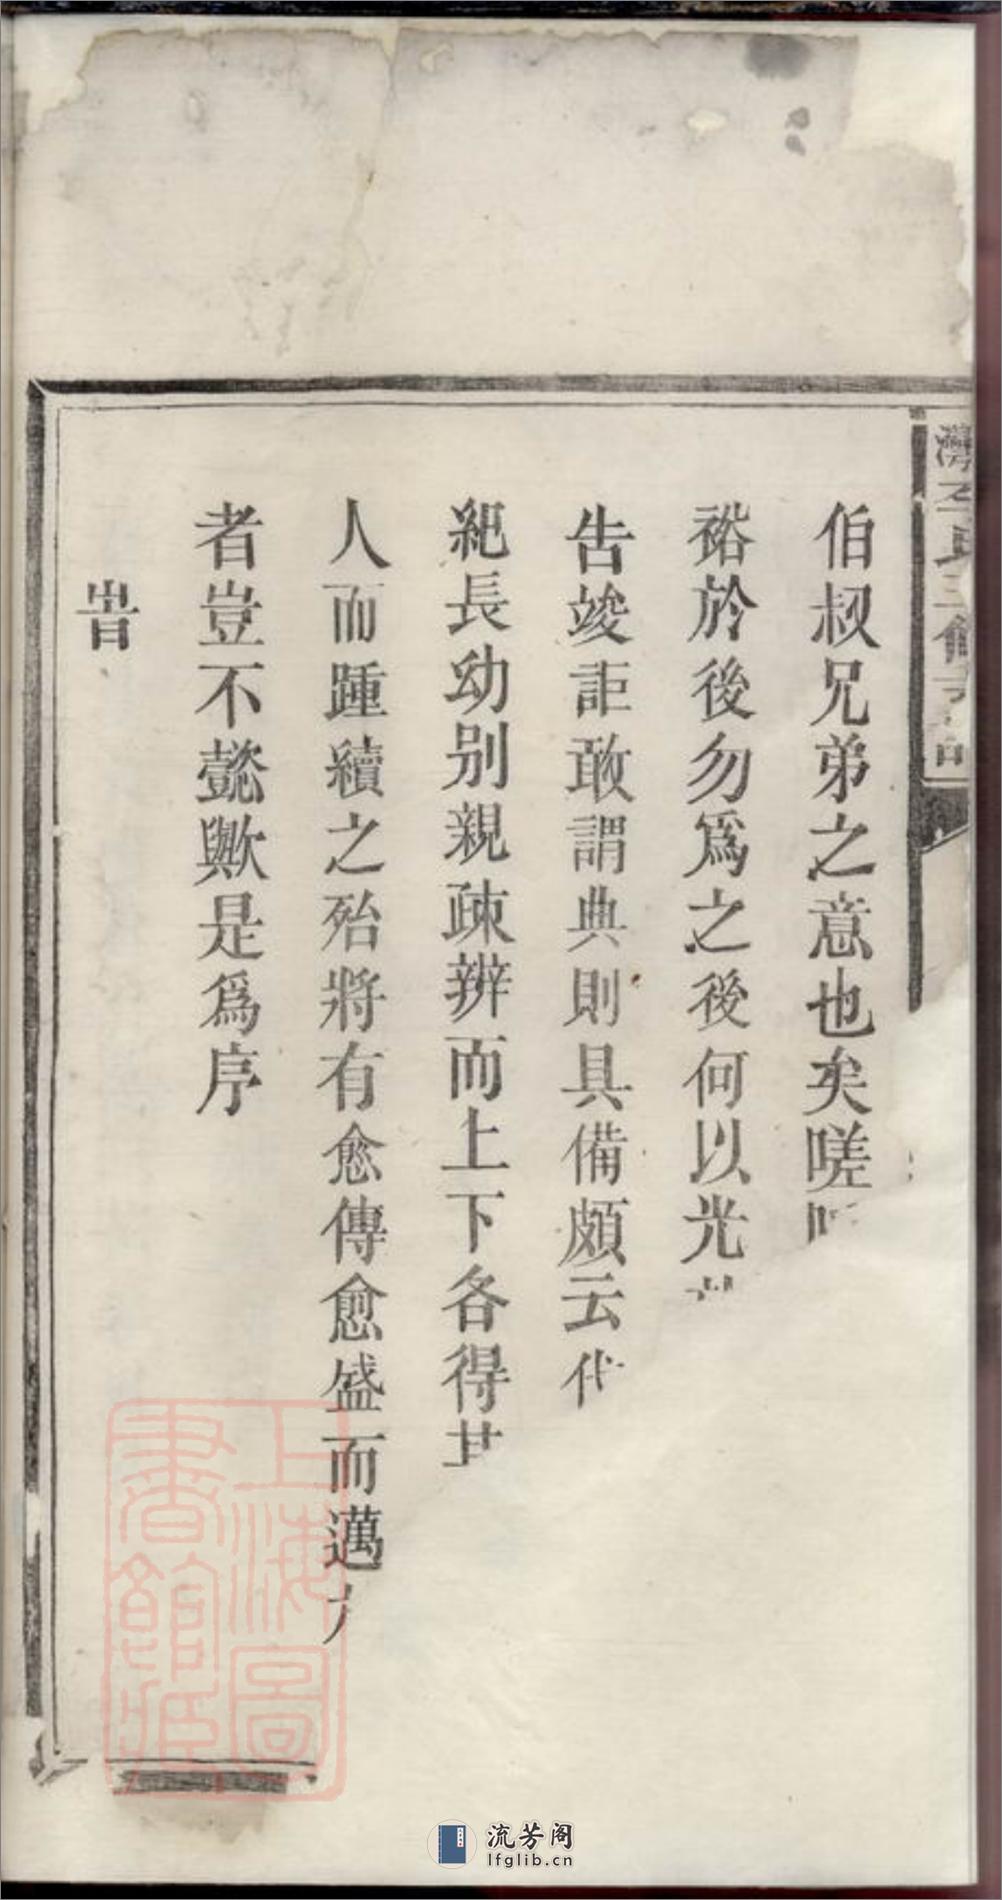 伯叔兄弟之意也矣嗟
裕於後勿爲之後何以光
告竣詎敢謂典則具備頗云代
紀長幼別親疎辨而上下各得其
人而踵續之殆將有愈傳愈盛而邁
者豈不懿歟是爲序
旹
上海圖
書館藏
流芳阁
lfglib.cn